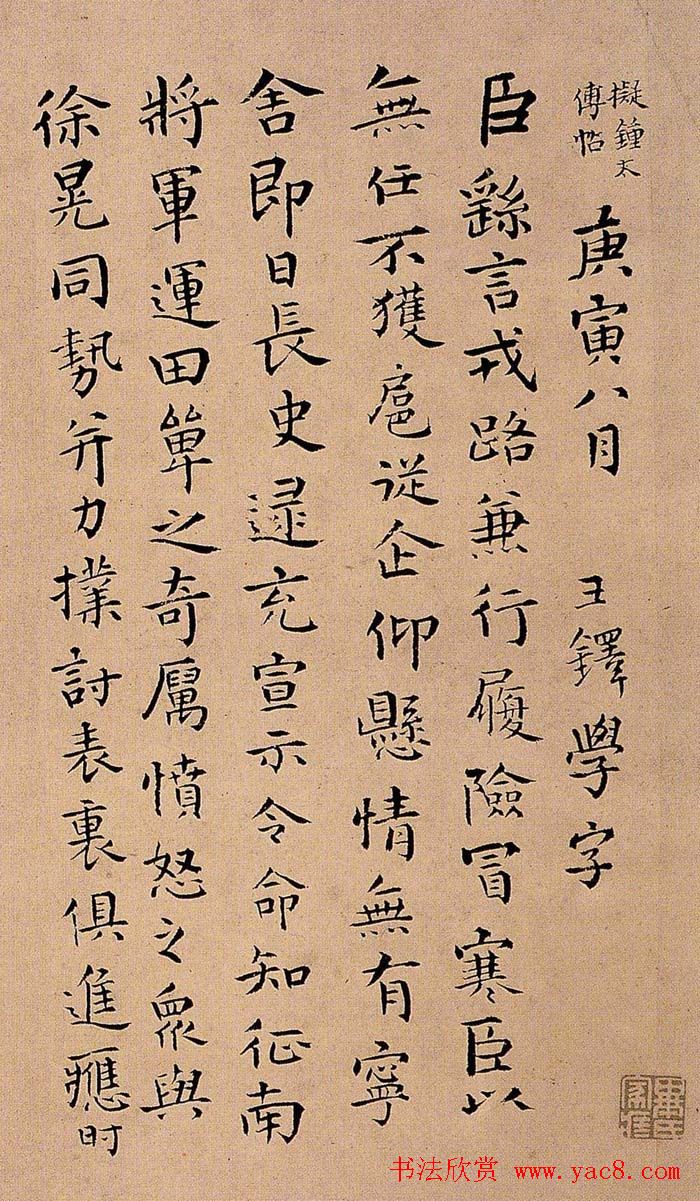 擬鍾太
傅帖
庚寅八月 王鐸學字
臣繇言戎路兼行履險冒寒臣以
無任不獲扈從企仰懸情無有寧
舍即日長史逯充宣示令命知征南
將軍運田單之奇厲憤怒之衆與
徐晃同勢并力撲討表裏俱進應時
书法欣赏 www.yac8.com